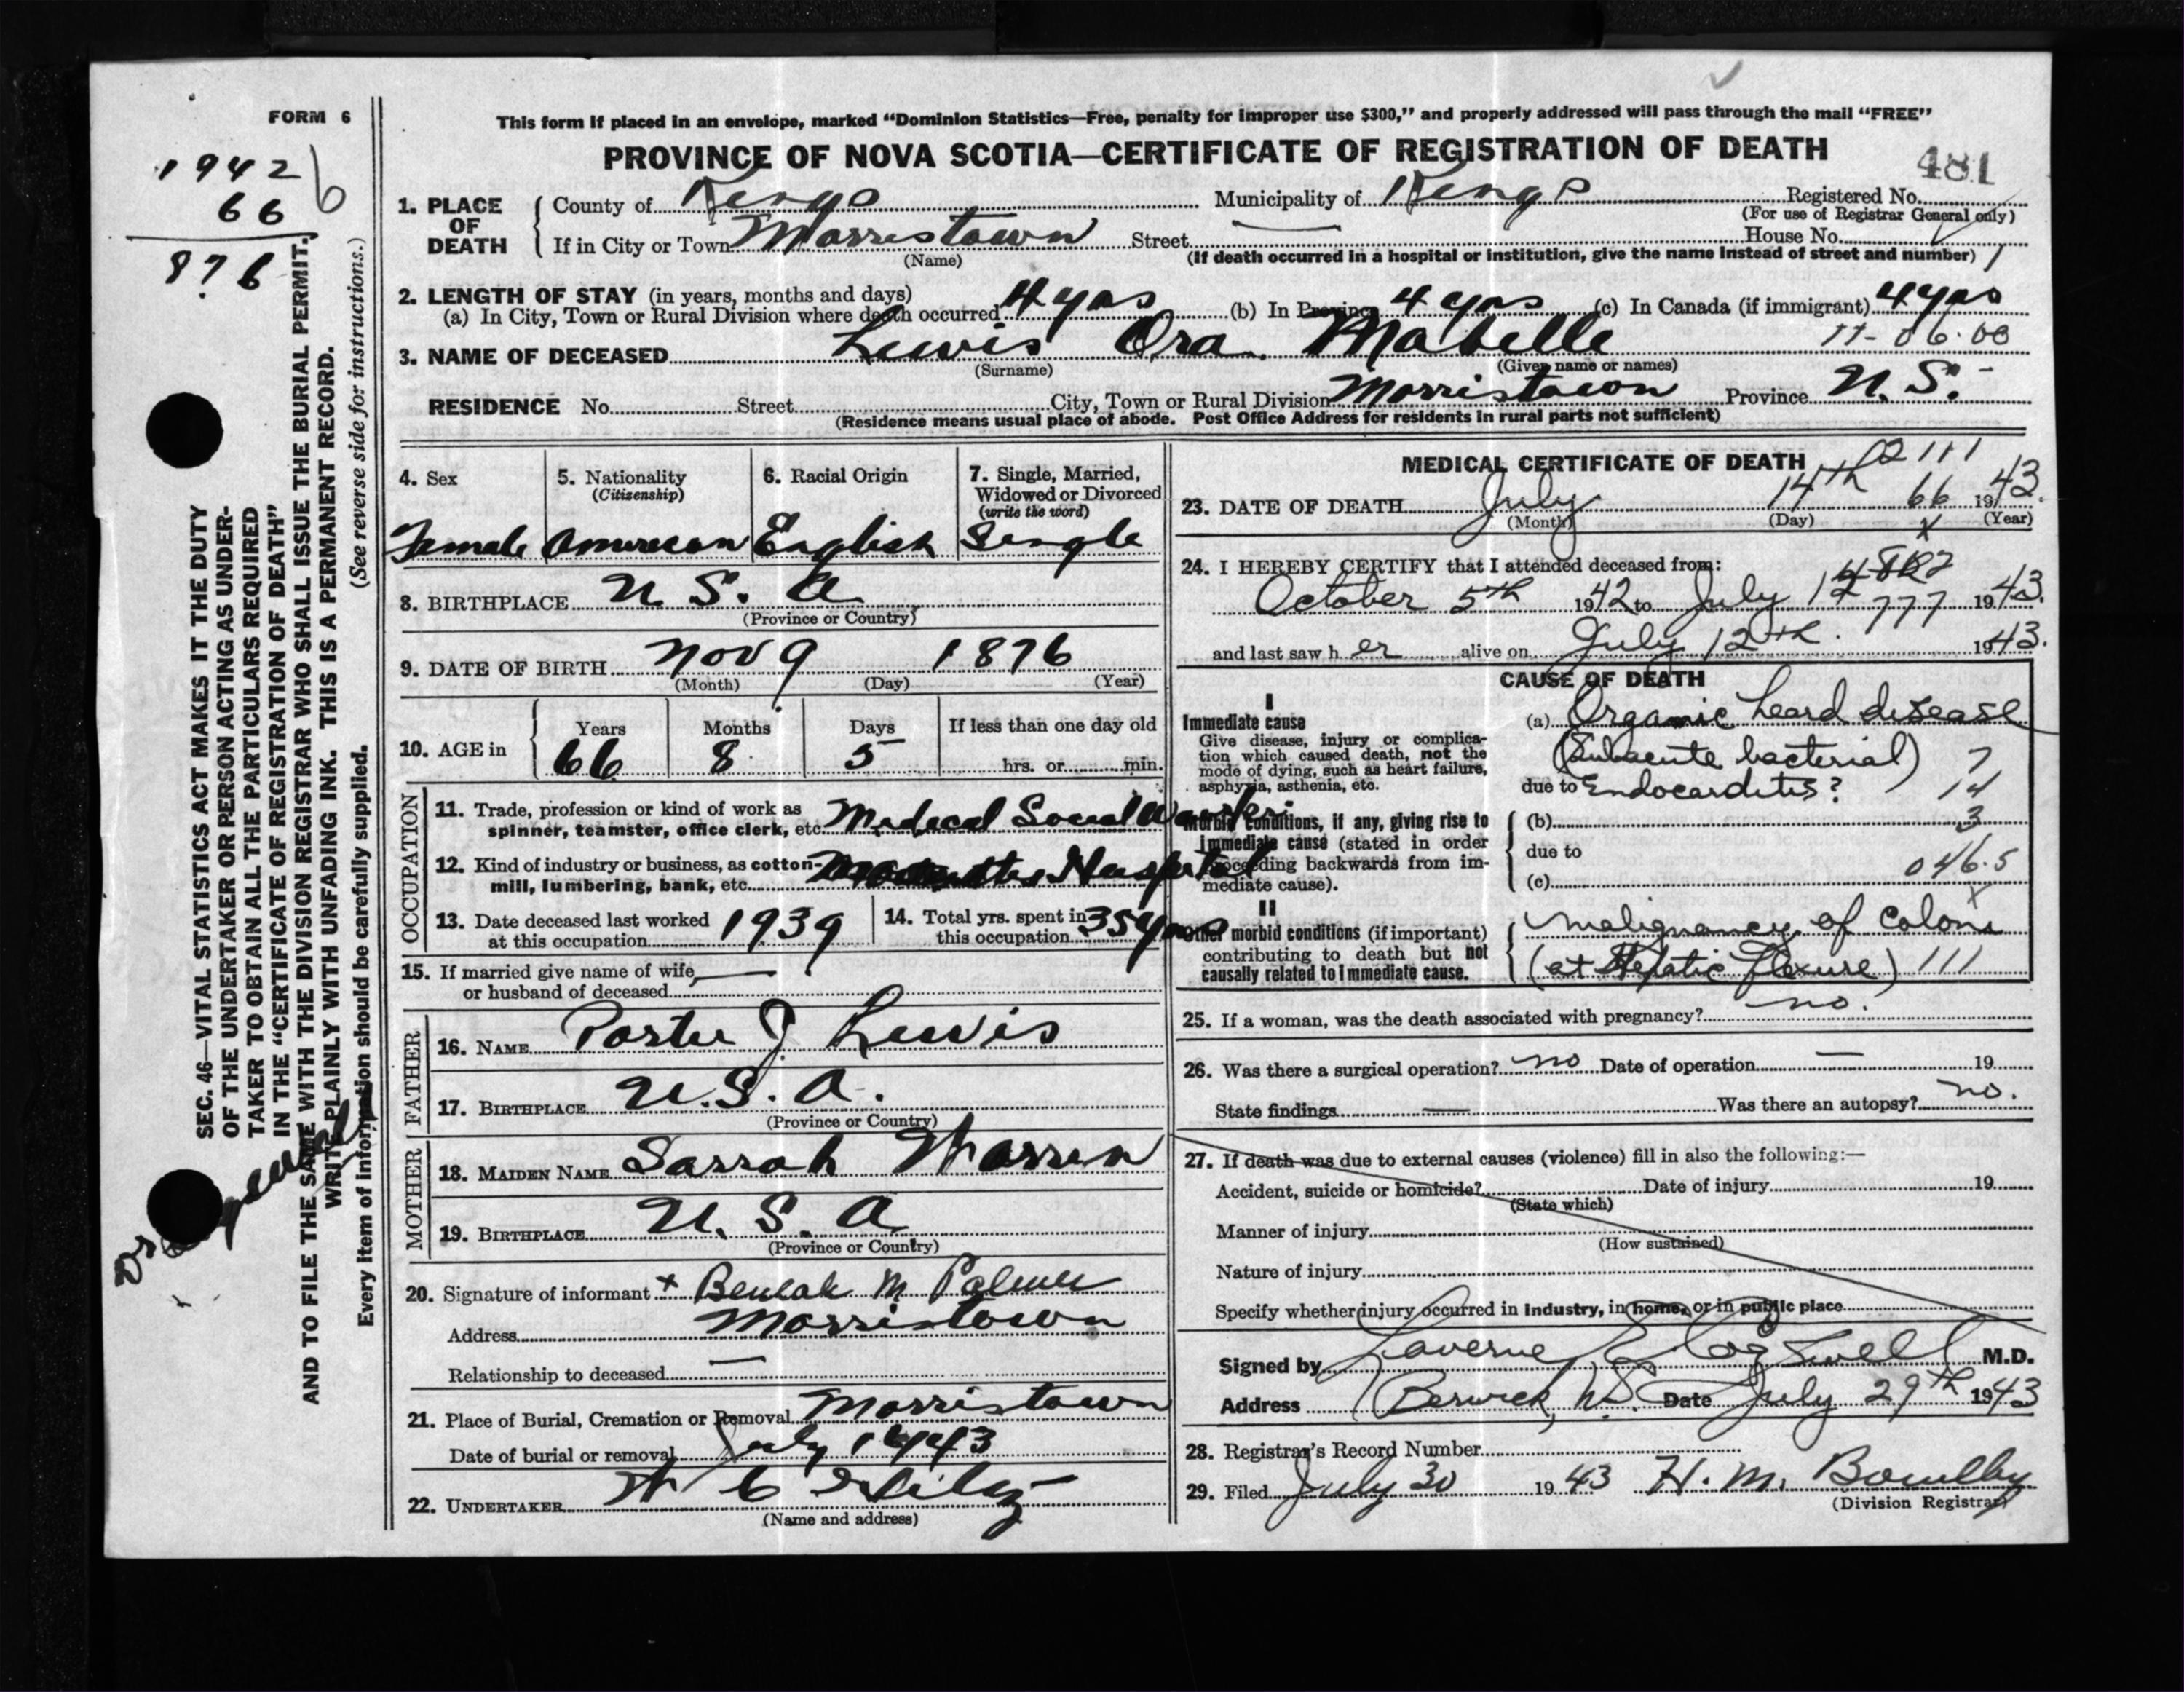 FORM 6
This form if placed in an envelope, marked “Dominion Statistics—Free, penalty for improper use $300,” and properly addressed will pass through the mail “FREE”
PROVINCE OF NOVA SCOTIA—CERTIFICATE OF REGISTRATION OF DEATH
481
1942 6
66
876
SEC. 46—VITAL STATISTICS ACT MAKES IT THE DUTY
OF THE UNDERTAKER OR PERSON ACTING AS UNDER-
TAKER TO OBTAIN ALL THE PARTICULARS REQUIRED
IN THE “CERTIFICATE OF REGISTRATION OF DEATH”
AND TO FILE THE SAME WITH THE DIVISION REGISTRAR WHO SHALL ISSUE THE BURIAL PERMIT.
WRITE PLAINLY WITH UNFADING INK. THIS IS A PERMANENT RECORD.
Every item of information should be carefully supplied. (See reverse side for instructions.)
1. PLACE OF DEATH
County of Kings Municipality of Kings Registered No.
(For use of Registrar General only)
If in City or Town Morristown Street — House No.
(Name) (If death occurred in a hospital or institution, give the name instead of street and number) 1
2. LENGTH OF STAY (in years, months and days)
(a) In City, Town or Rural Division where death occurred 4 yrs (b) In Province 4 yrs (c) In Canada (if immigrant) 4 yrs
3. NAME OF DECEASED Lewis Ora Mabelle 11-06.00
(Surname) (Given name or names)
RESIDENCE No. Street City, Town or Rural Division Morristown Province N.S.
(Residence means usual place of abode. Post Office Address for residents in rural parts not sufficient)
4. Sex
Female
5. Nationality
(Citizenship)
American
6. Racial Origin
English
7. Single, Married,
Widowed or Divorced
(write the word)
Single
8. BIRTHPLACE U.S.A
(Province or Country)
9. DATE OF BIRTH Nov 9 1876
(Month) (Day) (Year)
10. AGE in
Years Months Days If less than one day old
66 8 5 hrs. or min.
OCCUPATION
11. Trade, profession or kind of work as
spinner, teamster, office clerk, etc. Medical Social Worker
12. Kind of industry or business, as cotton-
mill, lumbering, bank, etc. Hospital
13. Date deceased last worked
at this occupation 1939
14. Total yrs. spent in
this occupation 35 yrs
15. If married give name of wife
or husband of deceased —
FATHER
16. NAME Porter J. Lewis
17. BIRTHPLACE U.S.A.
(Province or Country)
MOTHER
18. MAIDEN NAME Sarrah Warren
19. BIRTHPLACE U.S.A
(Province or Country)
20. Signature of informant x Beulah M Palmer
Address Morristown
Relationship to deceased —
21. Place of Burial, Cremation or Removal Morristown
Date of burial or removal July 1943
22. UNDERTAKER W C
(Name and address)
MEDICAL CERTIFICATE OF DEATH
02111
23. DATE OF DEATH July 14th 66 1943.
(Month) (Day) (Year)
x
24. I HEREBY CERTIFY that I attended deceased from:
October 5th 1942 to July 12 777 1943.
and last saw her alive on July 12th. 1943.
CAUSE OF DEATH
I
Immediate cause
Give disease, injury or complica-
tion which caused death, not the
mode of dying, such as heart failure,
asphyxia, asthenia, etc.
(a) Organic heard disease
(Subacute bacterial) 7
due to Endocarditis? 14
Morbid conditions, if any, giving rise to
immediate cause (stated in order
proceeding backwards from im-
mediate cause).
(b) 3
due to
(c) 046.5
x
II
Other morbid conditions (if important)
contributing to death but not
causally related to immediate cause.
Malignancy of colon
(at Hepatic flexure) 111
25. If a woman, was the death associated with pregnancy? no.
26. Was there a surgical operation? no Date of operation — 19
State findings — Was there an autopsy? no.
27. If death was due to external causes (violence) fill in also the following:—
Accident, suicide or homicide? Date of injury 19
(State which)
Manner of injury
(How sustained)
Nature of injury
Specify whether injury occurred in Industry, in home, or in public place
Signed by Laverne E Cogswell M.D.
Address Berwick, N.S. Date July 29th 1943
28. Registrar’s Record Number
29. Filed July 30 1943 H. M.
(Division Registrar)